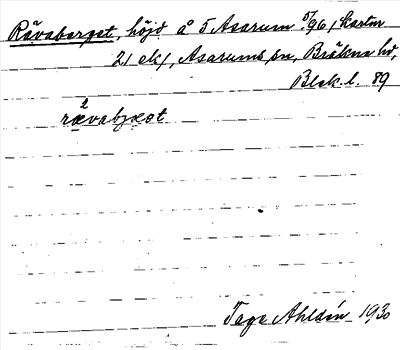 Rävaberget, höjd å 5 Asarum 5/96 (kartn
21 ek), Asarums sn, Bräkne hd,
Blek. l. 89
rävabjæst
Tage Ahldén 1930